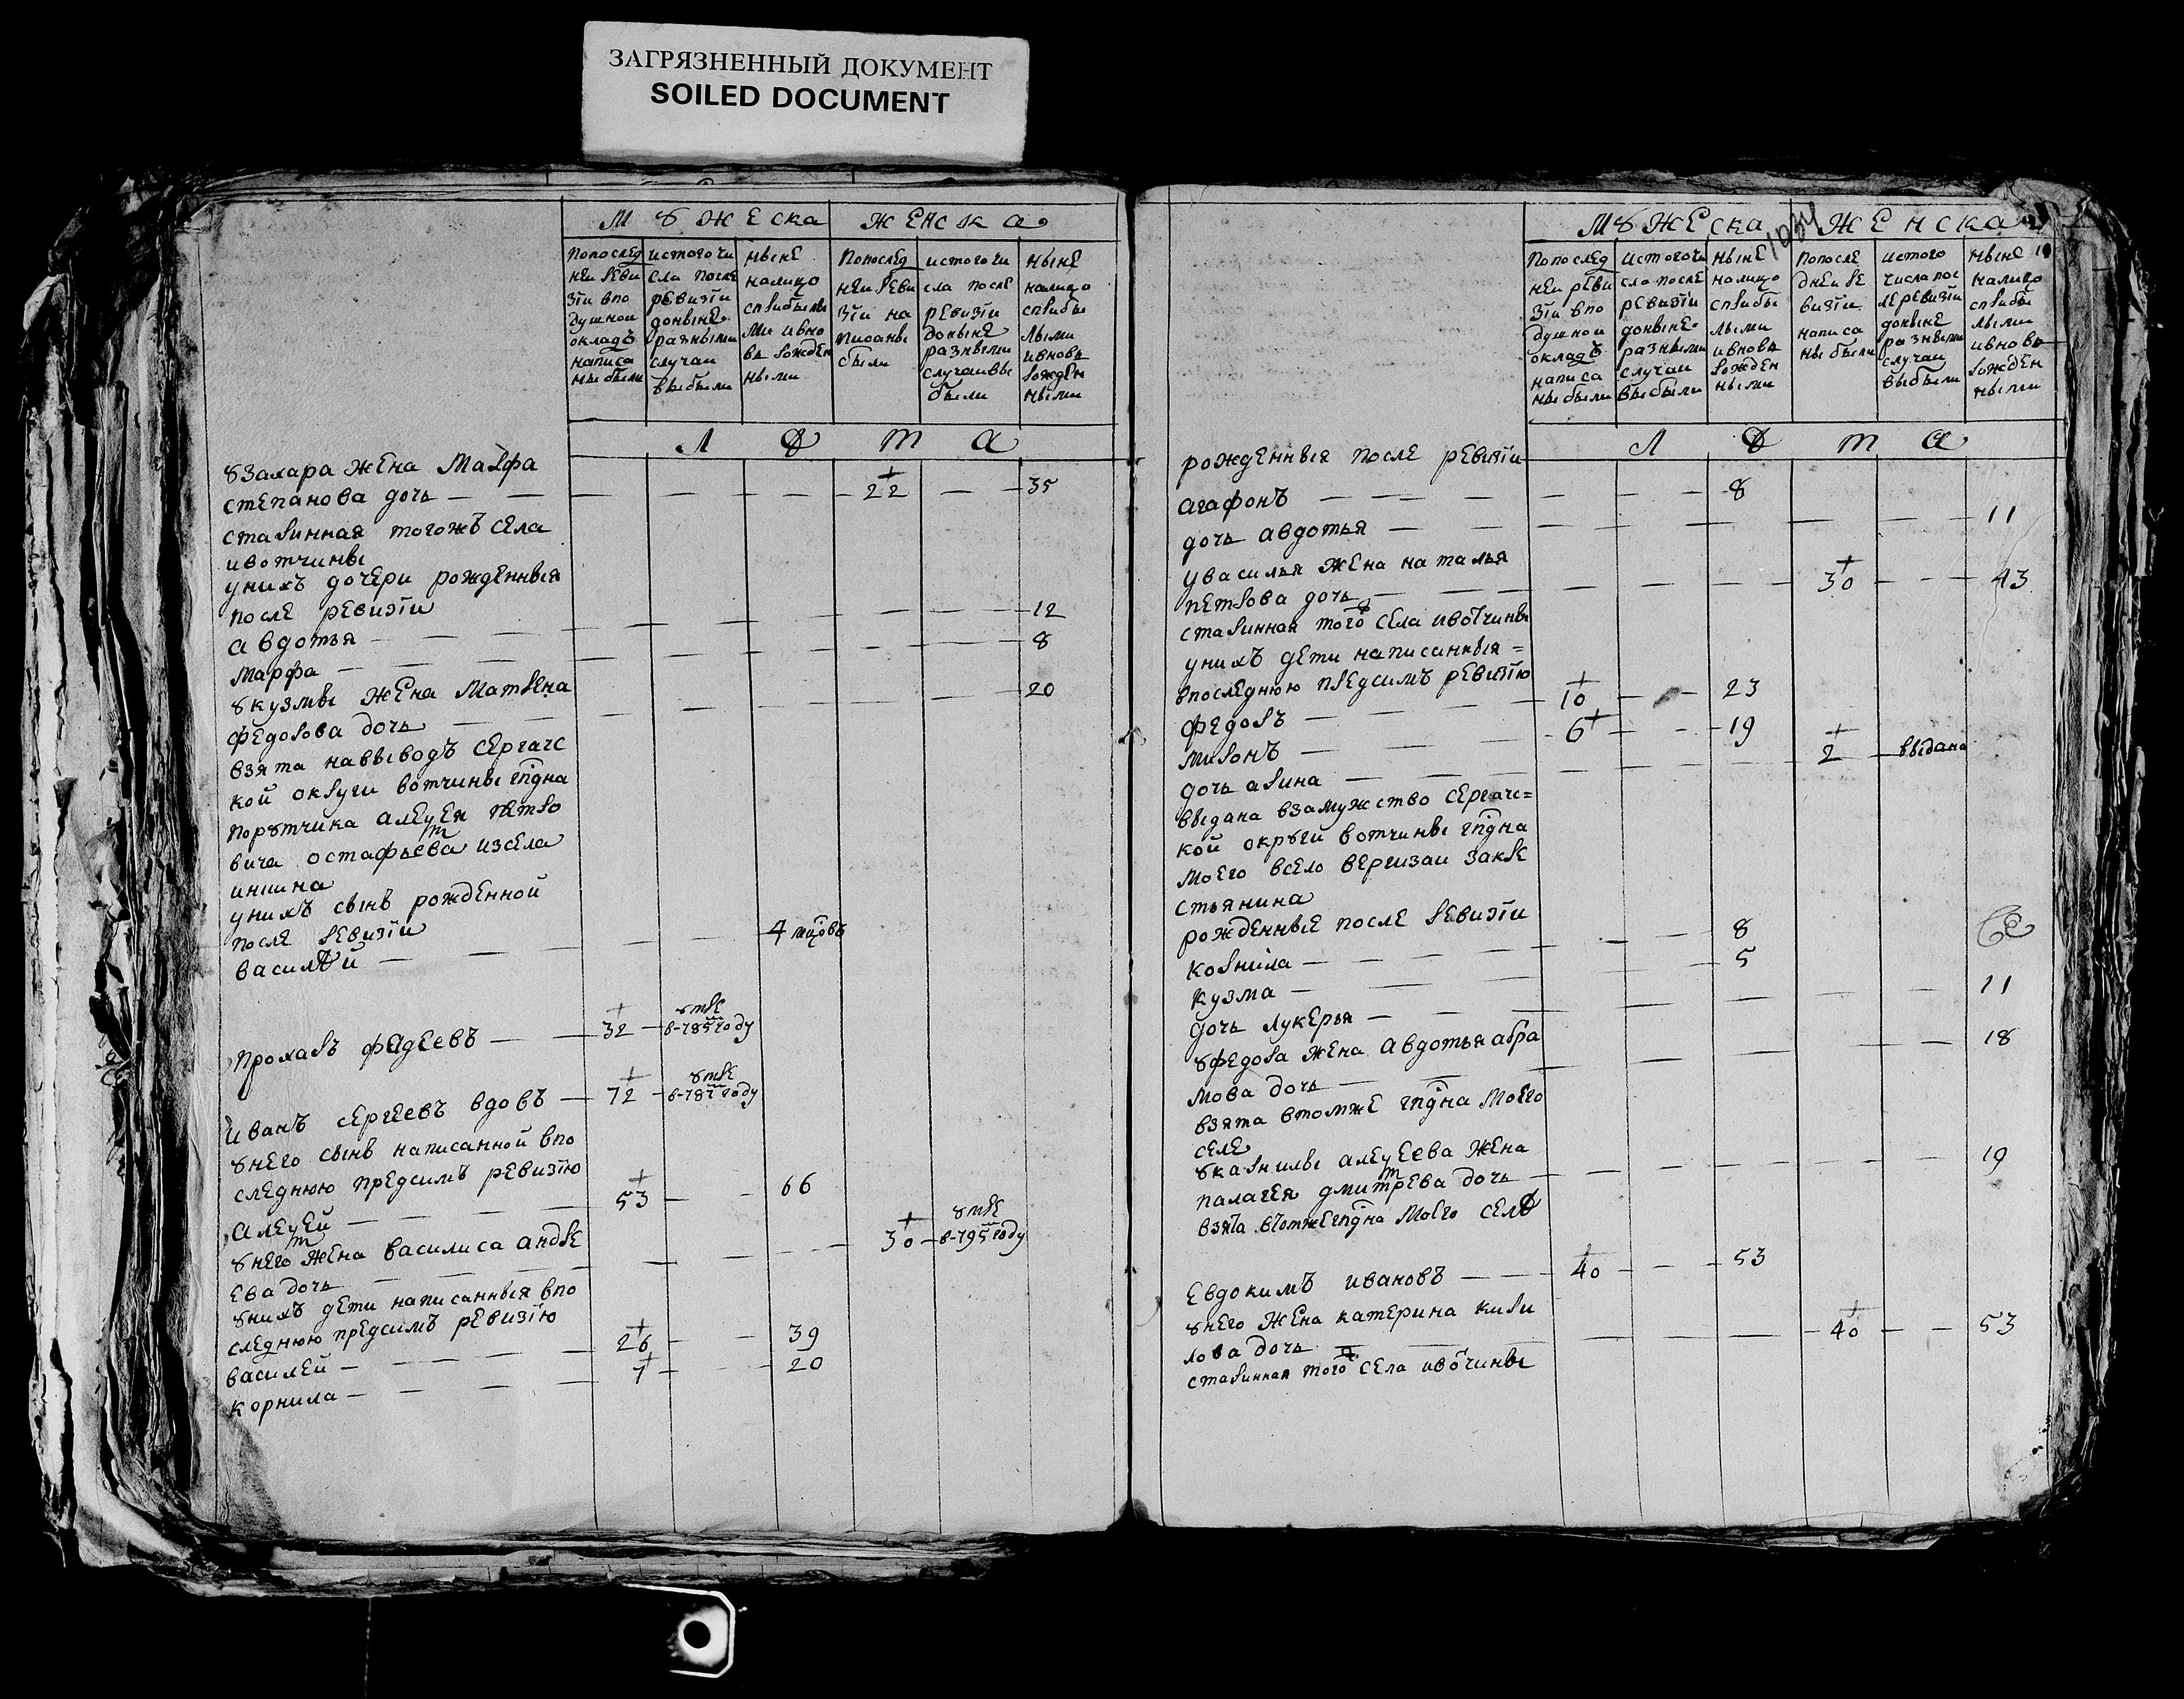 ЗАГРЯЗНЕННЫЙ ДОКУМЕНТ
SOILED DOCUMENT
мꙋжеска женска
попослед неи реви зïи впо душнои окладъ написа ны были
истогочи сла после ревизïи донынѣ разными случаи выбыли
ныне налицо сприбылы ми ивно вь рожден ными
попослед неи реви зïи на писаны были
истогочи сла после ревизïи доныне разными случаи вы были
ныне налицо сприбы лыми ивновь рожден ными
лѣта
ꙋзахара жена марфа
степанова дочь — 22 — 35
старинная тогожъ села
ивотчины
унихъ дочери рожденныя
после ревизïи
авдотья — 12
марфа — 8
ꙋкузмы жена матрена
федорова дочь — 20
взята навыводъ сергачс
кой округи вотчины гпдна
порꙋтчика алеѯея петро
вича остафьева изсела
ишина
унихъ сынъ рожденной
после ревизïи
василѣй — 4 мцовъ
прохаръ фадеевъ — 32 — ꙋмре в-785 году
иванъ сергеевъ вдовъ — 72 — ꙋмре в-787 году
ꙋнего сынъ написанной впо
следнюю предсимъ ревизïю
алеѯей — 53 — 66
ꙋнего жена василиса андре
ева дочь — 30 — ꙋмре в-795 году
ꙋнихъ дети написанныя впо
следнюю предсимъ ревизïю
василей — 26 — 39
корнила — 7 — 20
1034
мꙋжеска женска
попослед неи реви зïи впо душнои окладъ написа ны были
истогочи сла после ревизïи доныне разными случаи выбыли
ныне налицо сприбы лыми ивновь рожден ными
попосле днеи ре визïи написа ны были
истого числа пос ле ревизïи доныне разными случаи выбыли
ныне налицо сприбы лыми ивновь рожден ными
лѣта
рожденныя после ревизïи
агафонъ — 8
дочь авдотья — 11
увасилья жена наталья
петрова дочь — 30 — 43
старинная того села ивотчины
унихъ дети написанныя =
впоследнюю предсимъ ревизïю
федоръ — 10 — 23
миронъ — 6 — 19
дочь арина — 2 — выдана
выдана взамужство сергачс=
кой окрꙋги вотчины гпдна
моего всело вергизаи закре
стьянина
рожденные после ревизïи
корнила — 8
кузма — 5
дочь лукерья — 11
ꙋфедора жена авдотья абра
мова дочь — 18
взята втомже гпдна моего
селе
ꙋкарнилы алеѯеева жена
палагея дмитрева дочь — 19
взята втомже гпдна моего селѣ
евдокимъ ивановъ — 40 — 53
ꙋнего жена катерина кири
лова дочь — 40 — 53
старинная того села ивотчины